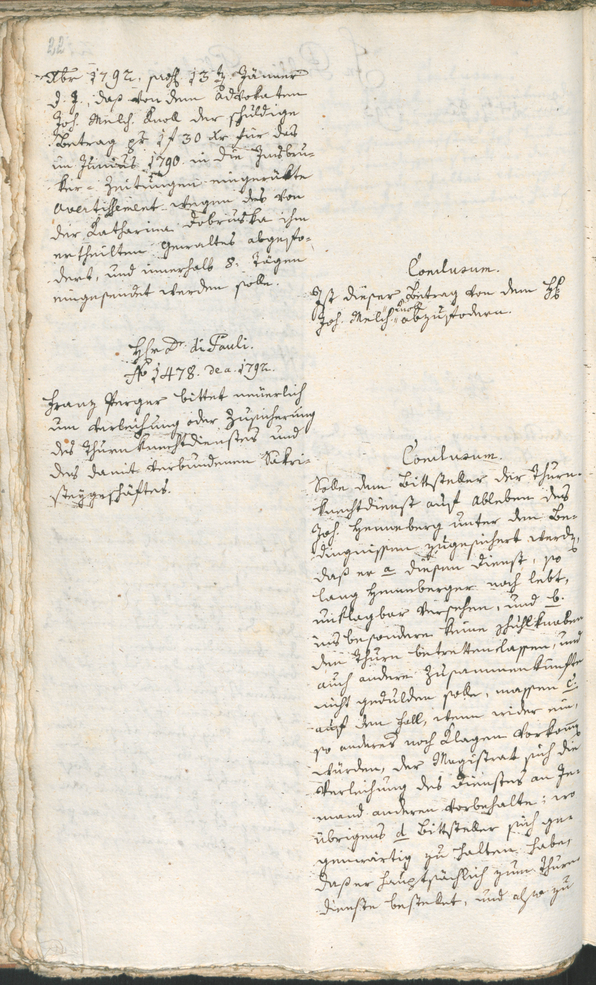 22
Xbr 1792. prs. 13ten Jänner
d. J., daß von dem Advokaten
Joh. Melch. Knol der schuldige
Betrag pr 1 f 30 xr für das
im Junius 1790 in die Insbru-
ker-Zeitungen eingerükte
Avertissement wegen des von
der Katharina Dobruska ihm
ertheilten Gewaltes abgefo-
dert, und innerhalb 8. Tägen
eingesendet werden solle.
Conclusum.
Ist dieser Betrag von dem Hr
Joh. Melch. Knoll abzufodern.
Hr. D. di Pauli.
No 1478. de a. 1792.
Franz Perger bittet neuerlich
um Verleihung oder Zusicherung
des Thurnknechtdienstes und
des damit verbundenen Sakri-
steygeschäftes.
Conclusum.
Solle dem Bittsteller der Thurn-
knechtdienst auf Ableben des
Joh. Henneberg unter dem Be-
dingnissen zugesichert werden,
daß er a diesen Dienst, so
lang Henneberger noch lebt,
unklagbar versehen, und b.
insbesondere keine Schulknaben
den Thurn betretten lassen, und
auch andere Zusammenkünfte
nicht gedulden solle, massen c.
auf den Fall, wenn wider ein,
so anderes noch Klagen vorkomen
würden, der Magistrat sich die
Verleihung des Dienstes an Je-
mand anderen vorbehalte; wo
übrigens d Bittsteller sich ge-
genwärtig zu halten habe,
daß er hauptsächlich zum Thurn-
dienste bestellet, und also zu